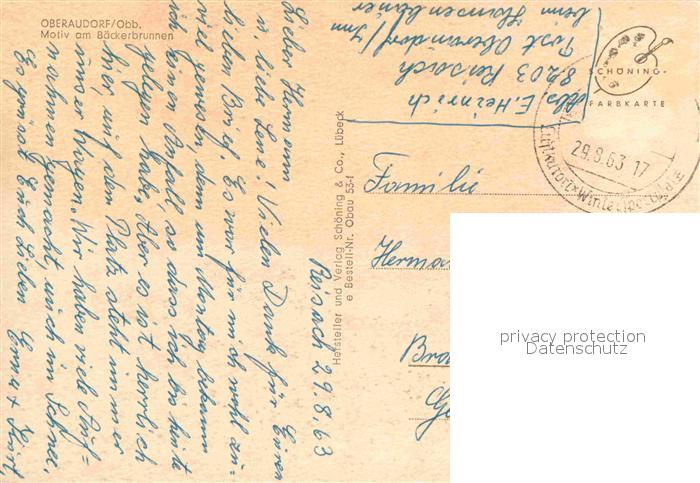 OBERAUDORF/Obb.
Motiv am Bäckerbrunnen
Reisach 29.8.63
Lieber Hermann
u. liebe Lene! Vielen Dank für Euren
lieben Brief. Es war für mich wohl zu-
viel gewesen, denn am Montag bekam
ich einen Anfall, so dass ich bis heute
gelegen habe, Aber es ist herrlich
hier, auf dem Platz steht immer
unser Wagen. Wir haben viele Auf-
nahmen gemacht, auch im Schnee.
Es grüsst Euch Lieben Erna + Kurt.
Hersteller und Verlag Schöning & Co., Lübeck
e Bestell-Nr. Obau 53-1
Abs. E. Heinrich
8203 Reisach
Post Oberaudorf/Inn
beim
SCHÖNING-
FARBKARTE
29.8.63 17
Luftkurort + Wintersportplatz
Familie
Herman
Bra
privacy protection
Datenschutz